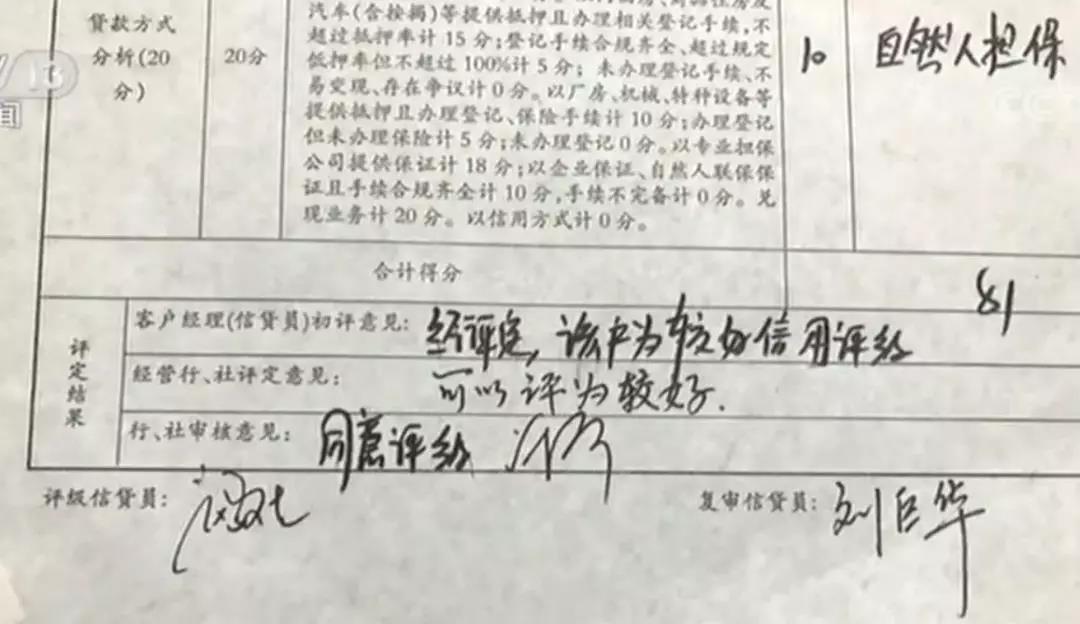 贷款方式
分析(20
分)
20分
汽车(含按揭)等提供抵押且办理相关登记手续,不
超过抵押率计15分;登记手续合规齐全、超过规定
低押率但不超过100%计5分;未办理登记手续、不
易变现、存在争议计0分。以厂房、机械、特种设备等
提供抵押且办理登记、保险手续计10分;办理登记
但未办理保险计5分;未办理登记0分。以专业担保
公司提供保证计18分;以企业保证、自然人联保保
证且手续合规齐全计10分,手续不完备计0分。兑
现业务计20分。以信用方式计0分。
10
自然人担保
合计得分
81
评定结果
客户经理(信贷员)初评意见:经评定,该户为较好信用评级
经营行、社评定意见:可以评为较好.
行、社审核意见:同意评级
评级信贷员:
复审信贷员:刘巨华
13
闻